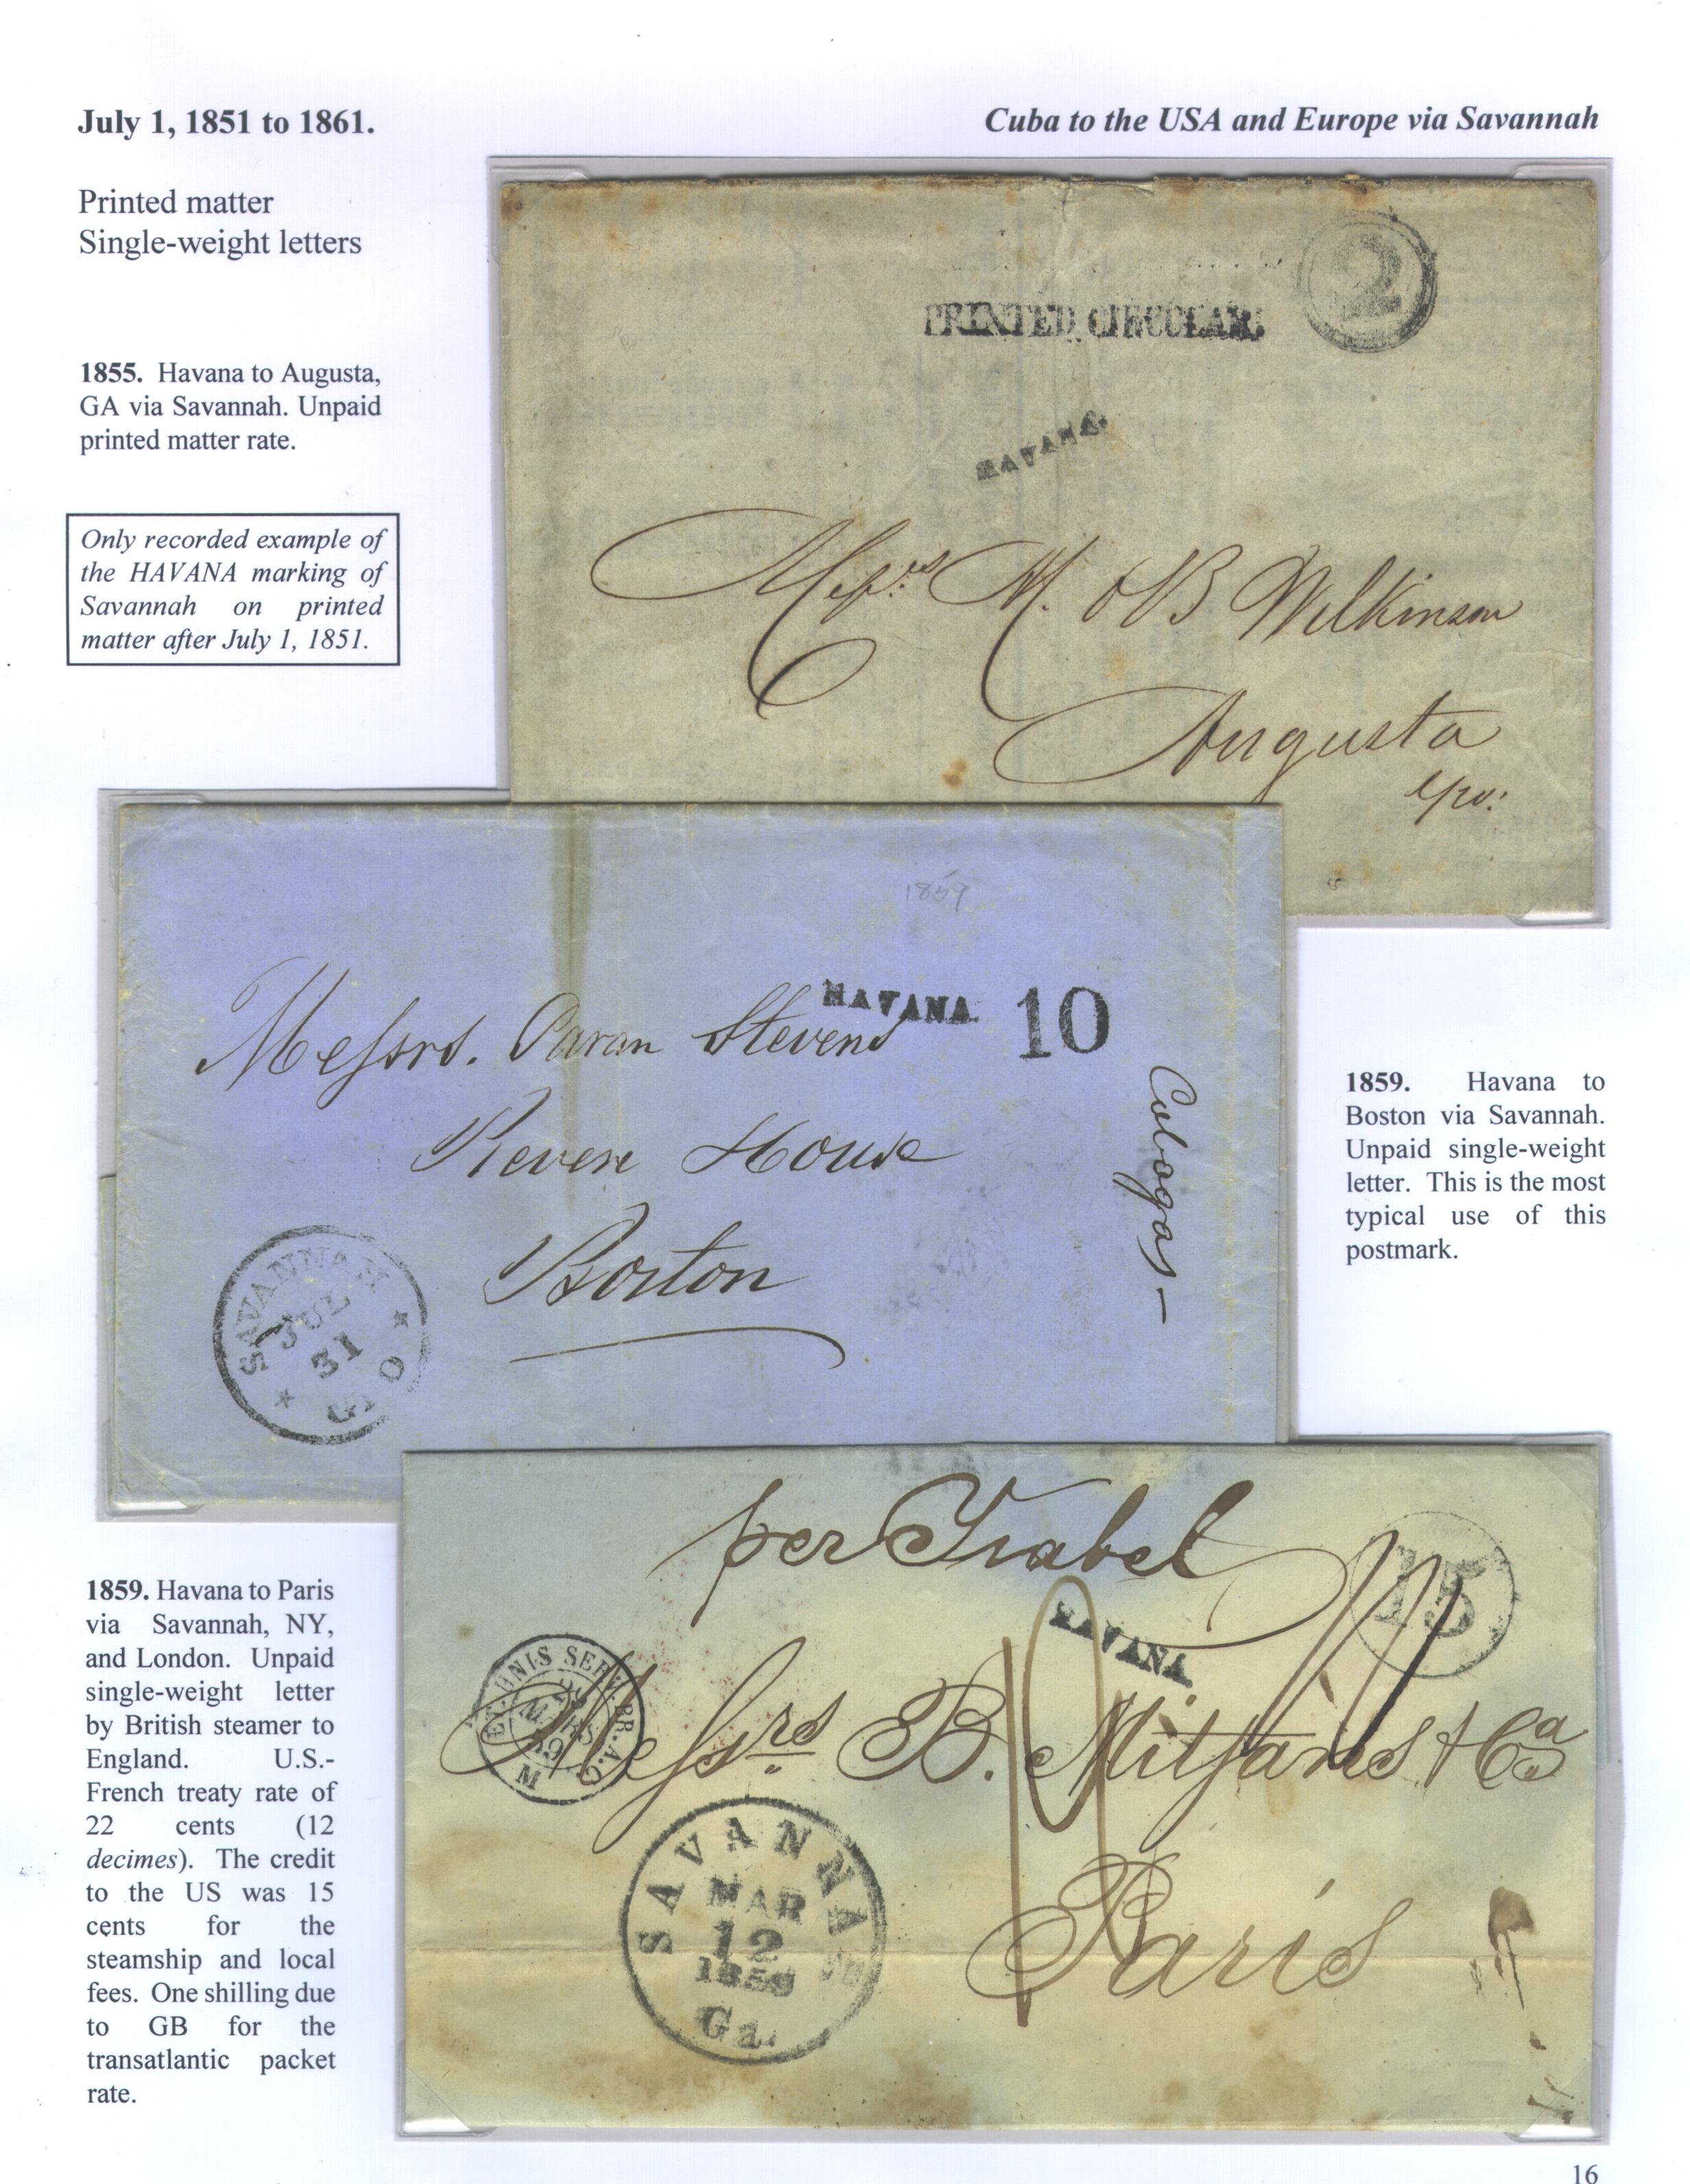 July 1, 1851 to 1861.
Cuba to the USA and Europe via Savannah
Printed matter
Single-weight letters
1855. Havana to Augusta,
GA via Savannah. Unpaid
printed matter rate.
Only recorded example of
the HAVANA marking of
Savannah on printed
matter after July 1, 1851.
2
PRINTED CIRCULAR.
HAVANA.
Messrs M. & B Wilkinson
Augusta
1859
HAVANA.
10
Messrs. Paran Stevens
Revere House
Boston
SAVANNAH
JUL
31
GEO
1859. Havana to
Boston via Savannah.
Unpaid single-weight
letter. This is the most
typical use of this
postmark.
1859. Havana to Paris
via Savannah, NY,
and London. Unpaid
single-weight letter
by British steamer to
England. U.S.-
French treaty rate of
22 cents (12
decimes). The credit
to the US was 15
cents for the
steamship and local
fees. One shilling due
to GB for the
transatlantic packet
rate.
per Isabel
15
HAVANA
Messrs B. Mitjans & Ca
Paris
SAVANNAH
MAR
12
1859
Ga.
16